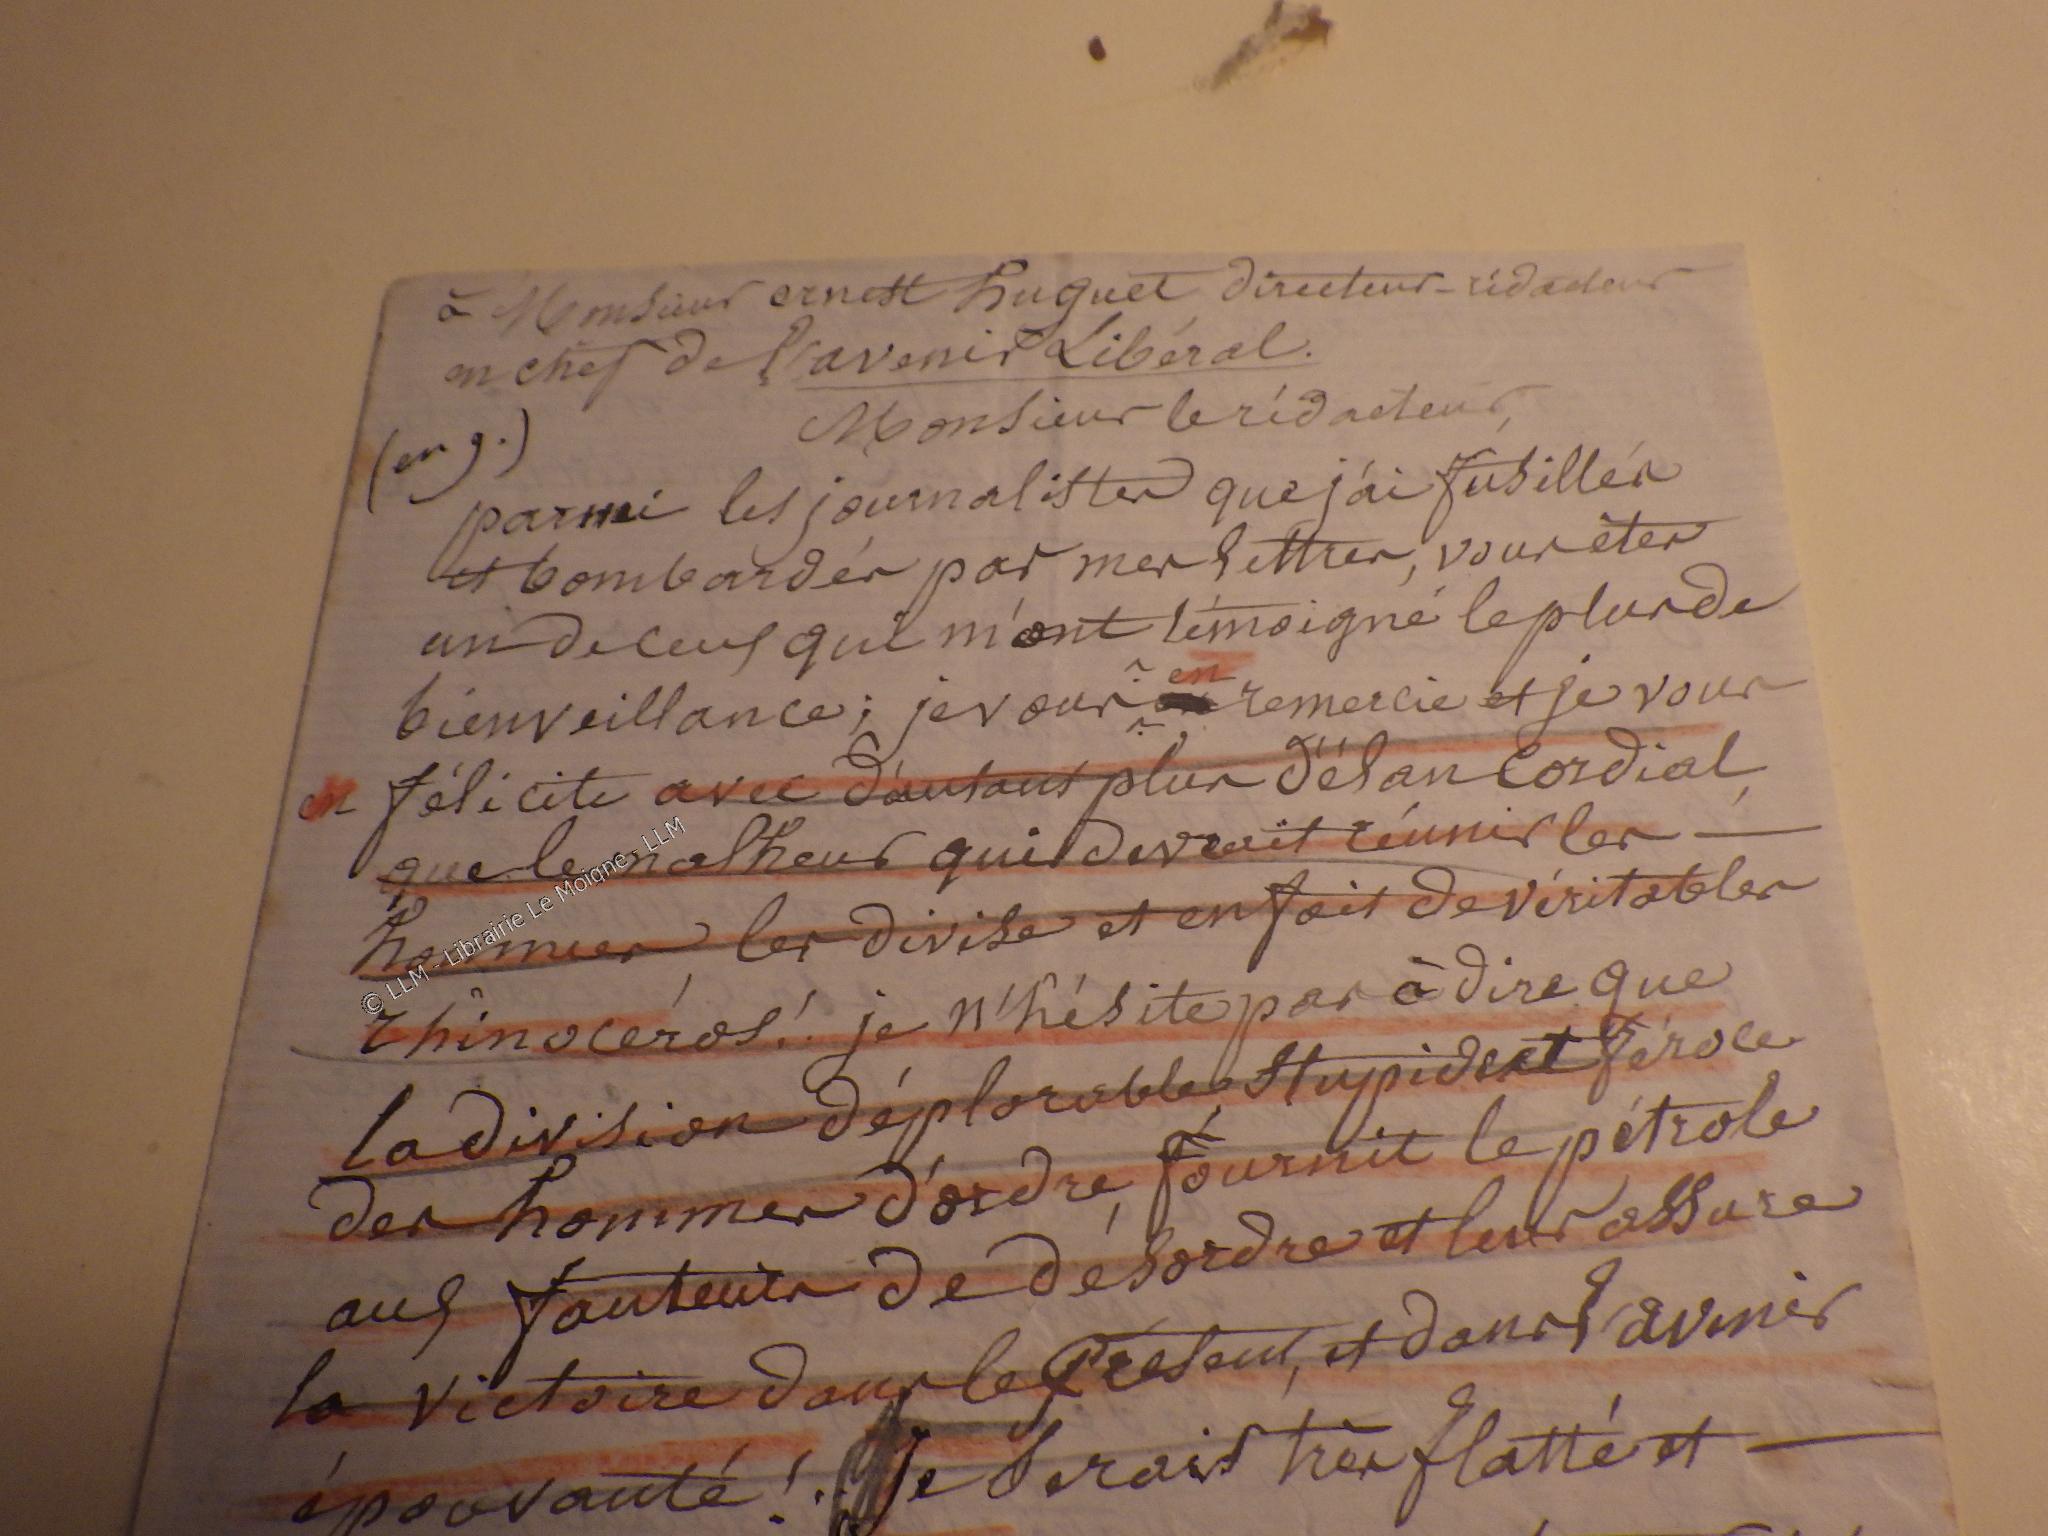 à Monsieur ernest huguet directeur-rédacteur
en chef de l'avenir Libéral.
Monsieur le rédacteur,
(en g.)
parmi les journalistes que j'ai fusillés
et bombardés par mes lettres, vous êtes
un de ceux qui m'ont témoigné le plus de
bienveillance; je vous en remercie et je vous
en félicite avec d'autant plus d'élan cordial,
que le malheur qui devrait réunir les —
hommes les divise et en fait de véritables
rhinocéros!.. je n'hésite pas à dire que
la division déplorable, stupide et féroce
des hommes d'ordre, fournit le pétrole
aux fauteurs de désordre et leur assure
la victoire dans le Présent, et dans l'avenir
épouvanté!.. Je serais très flatté et —
© LLM - Librairie Le Moigne - LLM